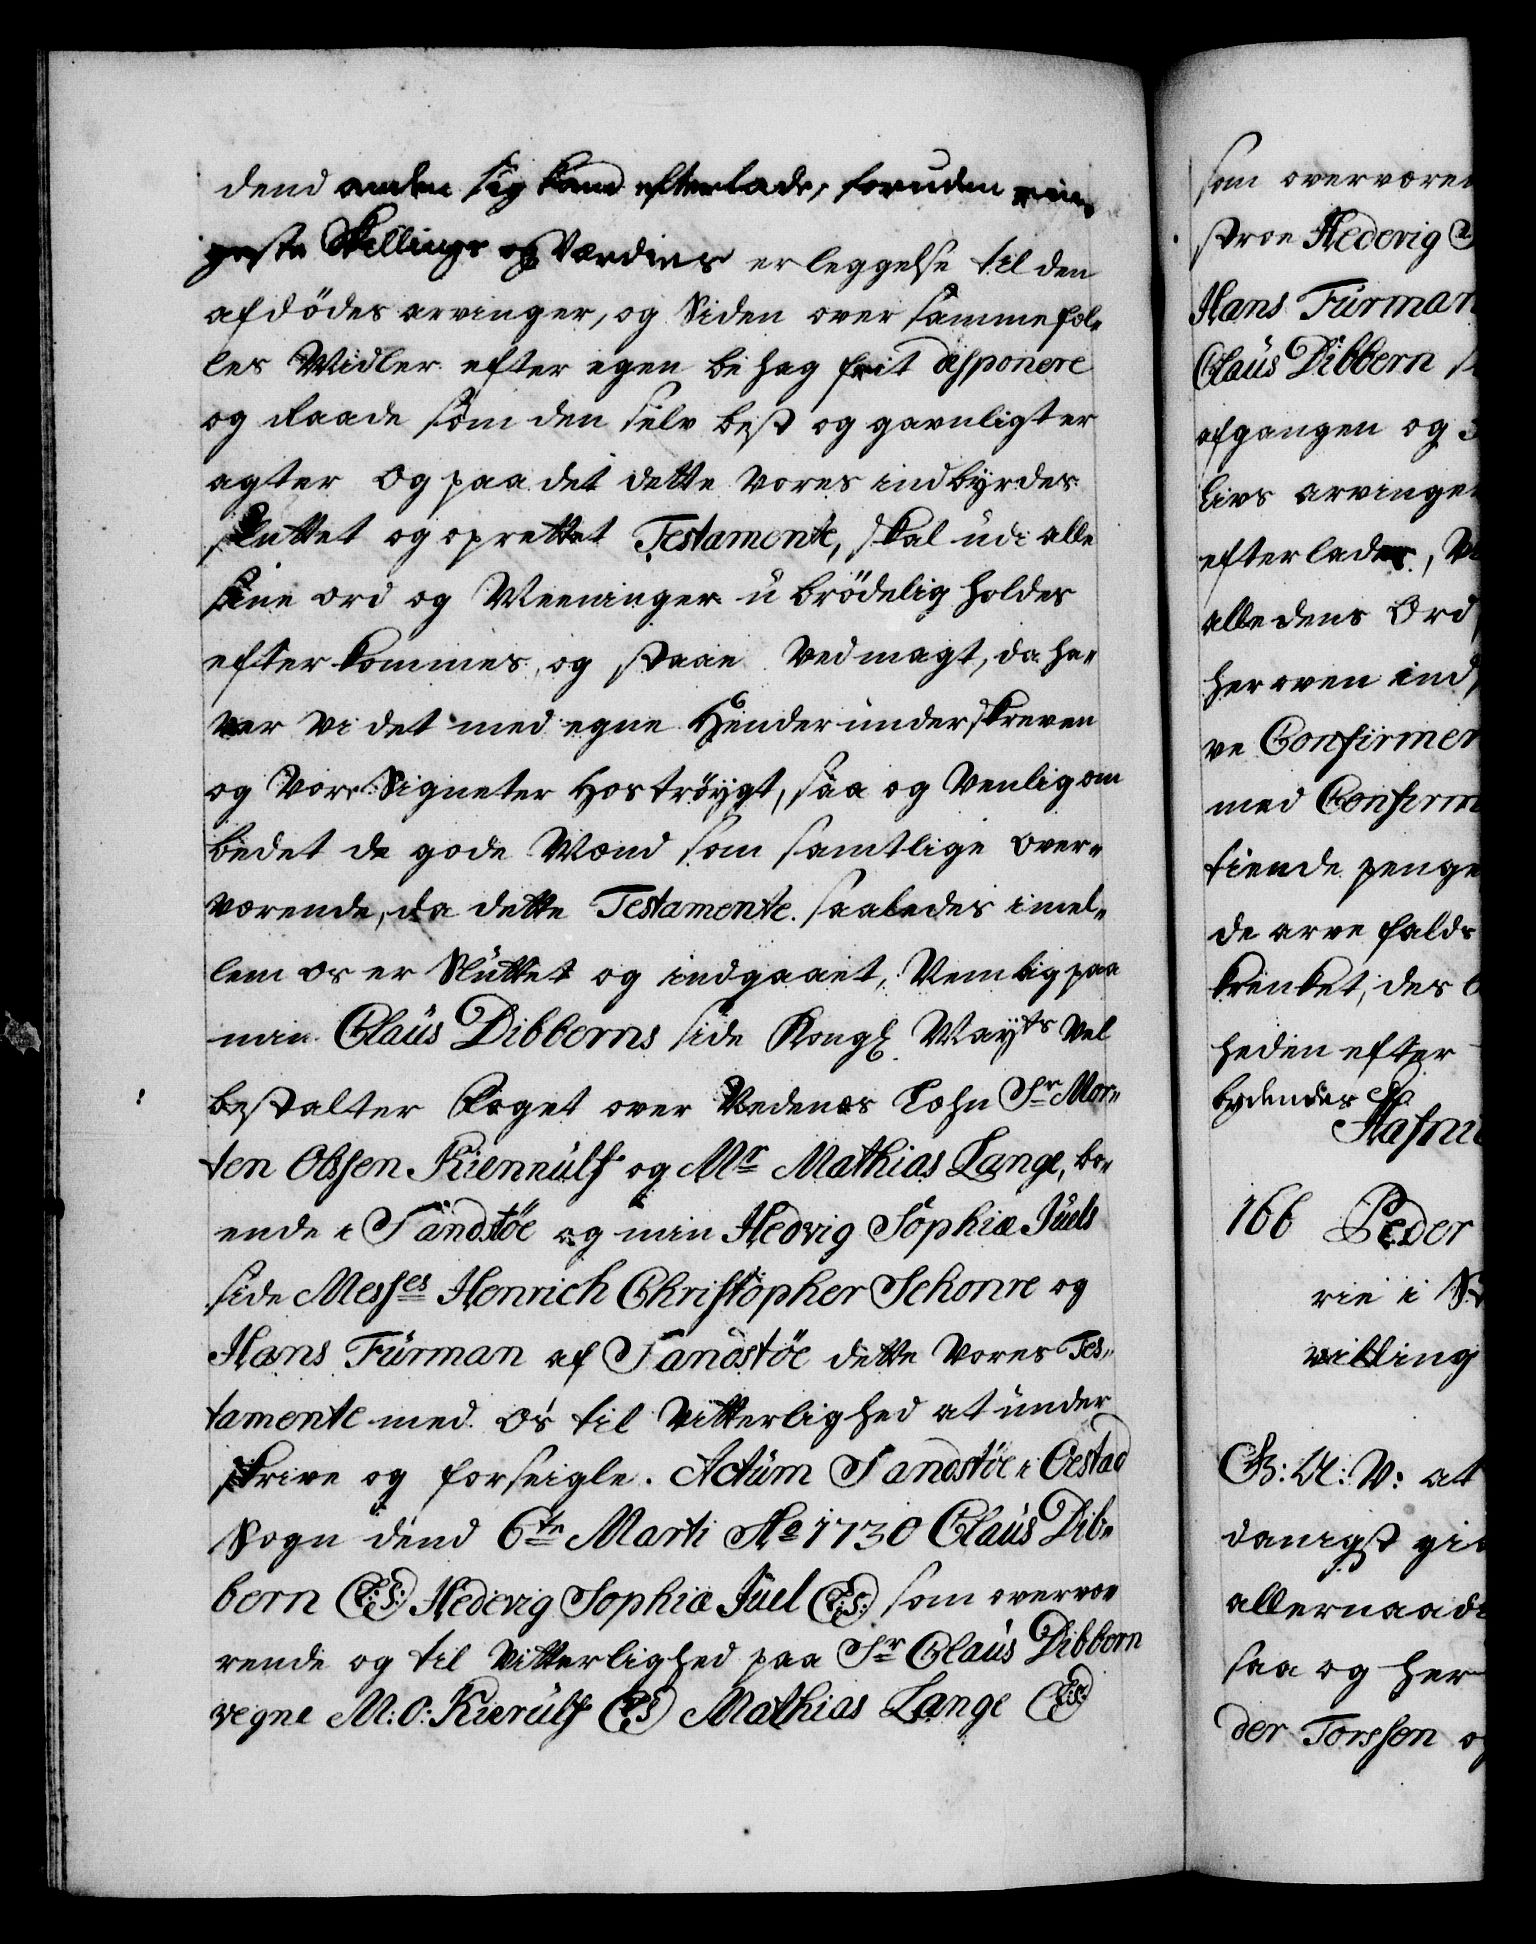 dend anden sig kand efterlade, foruden rin„
geste Skillings og Værdies erleggelse til den
afdödes arvinger, og Siden over samme fæl„
les Midler efter egen behag frit disponere
og Raade som den selv best og gavnligt er
agter Og paa det dette vores indbÿrdes
sluttet og oprettet Testamente, skal udi alle
sine ord og Meeninger ubrödelig holdes
efterkommes, og staae ved magt, da ha„
ver vi det med egne Hender underskreven
og vore Signeter hostrÿgt, saa og venlig om
bedet de gode Mænd som samtlige over„
værende, da dette Testamente saaledes imel„
lem os er Sluttet og indgaaet, Nemlig paa
min Claus Dibberns side Kongl Mayts Vel
bestalter Foget over Nedenes Læhn Sr Mor„
ten Olssen Kierrulf og Mr Mathias Lange, bo„
ende i Sandstöe og min Hedvig Sophiæ Juels
side Messes Henrich Christopher Schonre og
Hans Fürman af Sandstöe dette Vores Tes„
tamente med Os til Vitterlighed at under
skrive og forseigle. Actum Sandstöe i Oestad
Sogn dend 6te Marti Ao 1730 Claus Dib„
bern (L:S:) Hedevig Sophiæ Juel (L:S:) som overvæ
rende og til Vitterlighed paa Sr Claus Dibbern
vegne M: O: Kierulf (L:S) Mathias Lange (L:S:)
som overværen
stroe Hedevig S
Hans Fürman
Claus Dibbern
afgangen og
livs arvinger
efterlader,
alle dens Ord
her oven ind
ve Confirmer
med Confirm
tiende penge
de arve falds
krenket, des
heden efter
bydendes
Hafni
166 Peder
rie i
villing
G: A: V: at
danigst gi
allernaad
saa og her
der Torssen o